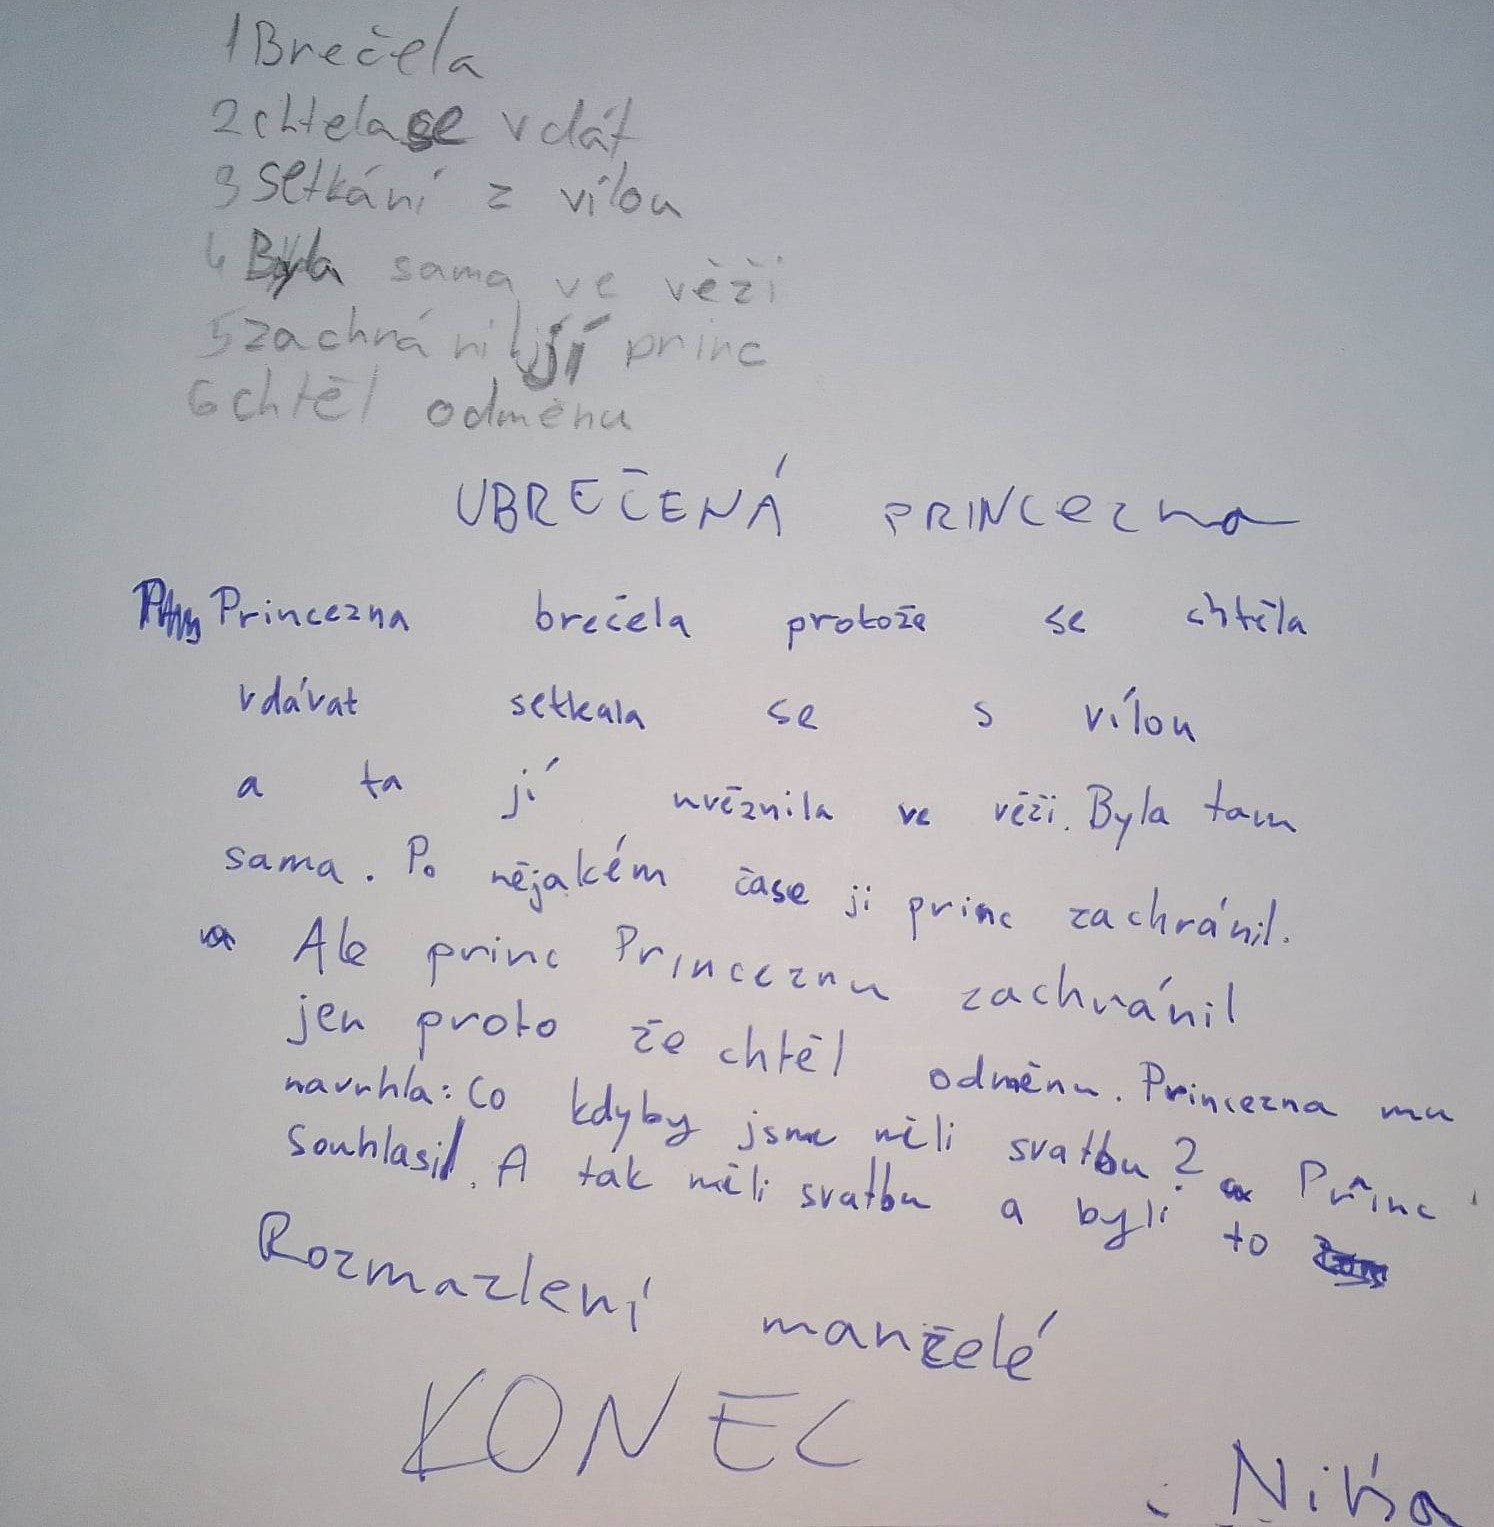 1 Brečela
2 chtela se vdát
3 setkání z vílou
4 Byla sama ve věži
5 zachránil jí princ
6 chtěl odměnu
UBREČENÁ PRINCezna
Princezna brečela protože se chtěla
vdávat setkala se s vílou
a ta jí uvěznila ve věži. Byla tam
sama. Po nějakém čase ji princ zachránil.
Ale princ Princeznu zachránil
jen proto že chtěl odměnu. Princezna mu
navrhla: Co kdyby jsme měli svatbu? Princ
souhlasil. A tak měli svatbu a byli to
Rozmazlení manželé
KONEC
Nika